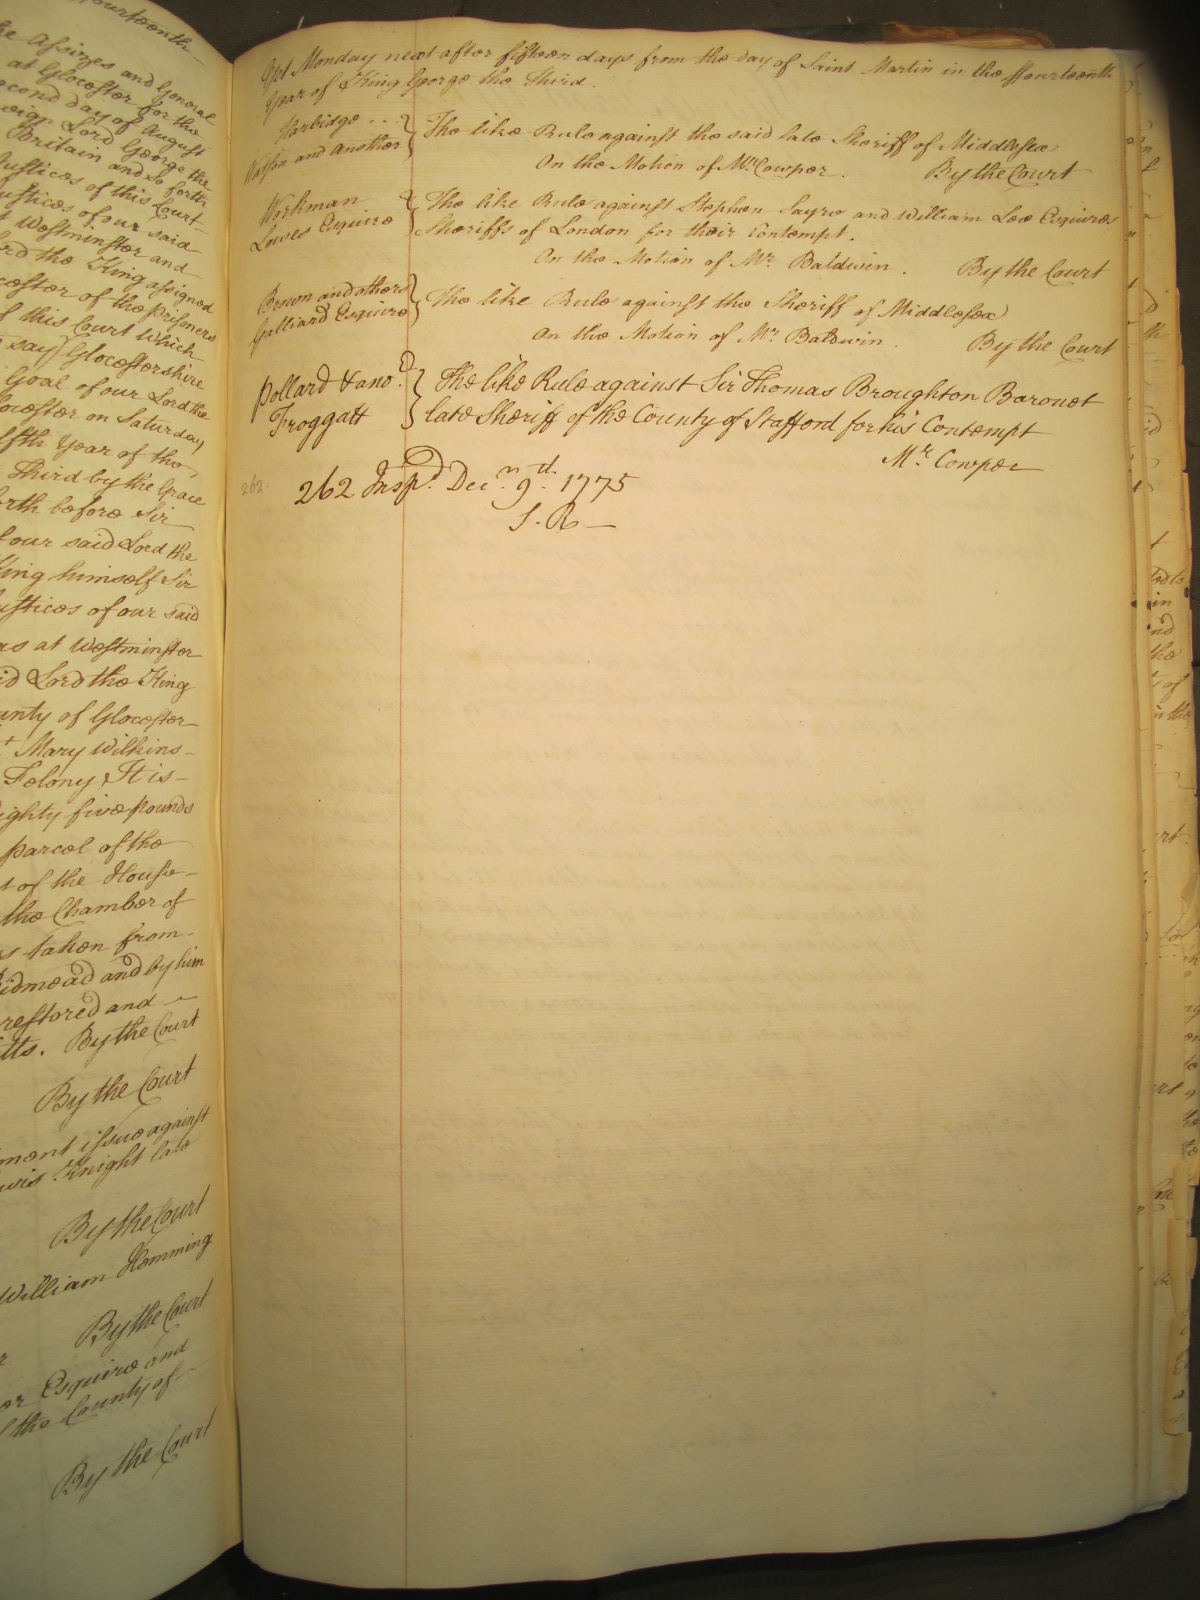 ourteenth
he Assizes and General
at Glocester for the
econd day of August
eign Lord George the
Britain and so forth
Justices of this Court
ustices of our said
t Westminster and
rd the King assigned
cester of the prisoners
f this Court which
say) Glocestershire
Goal of our Lord the
locester on Saturday
lfth Year of the
Third by the Grace
orth before Sir
four said Lord the
King himself Sir
ustices of our said
as at Westminster
id Lord the King
unty of Glocester
t Mary Wilkins
Felony It is
ighty five pounds
parcel of the
s of the House
the Chamber of
s taken from
idmead and by him
restored and
tts. By the Court
By the Court
ment issue against
wis Knight late
By the Court
William Hemming
By the Court
or Esquire and
f the County of
By the Court
Yet Monday next after fifteen days from the day of Saint Martin in the ffourteenth
Year of King George the Third.
Harbidge
Watson and Another
The like Rule against the said late Sheriff of Middlesex
On the Motion of Mr. Cowper. By the Court
Workman
Lowes Esquire
The like Rule against Stephen Sayre and William Lee Esquires
Sheriffs of London for their Contempt.
On the Motion of Mr. Baldwin. By the Court
Brown and others
Galliard Esquire
The like Rule against the Sheriff of Middlesex
On the Motion of Mr. Baldwin. By the Court
Pollard & ano.r
Froggatt
The like Rule against Sir Thomas Broughton Baronet
late Sheriff of the County of Stafford for his Contempt
Mr. Cowper
262.
262 Insp.d Dec.r 9.th 1775
S. R